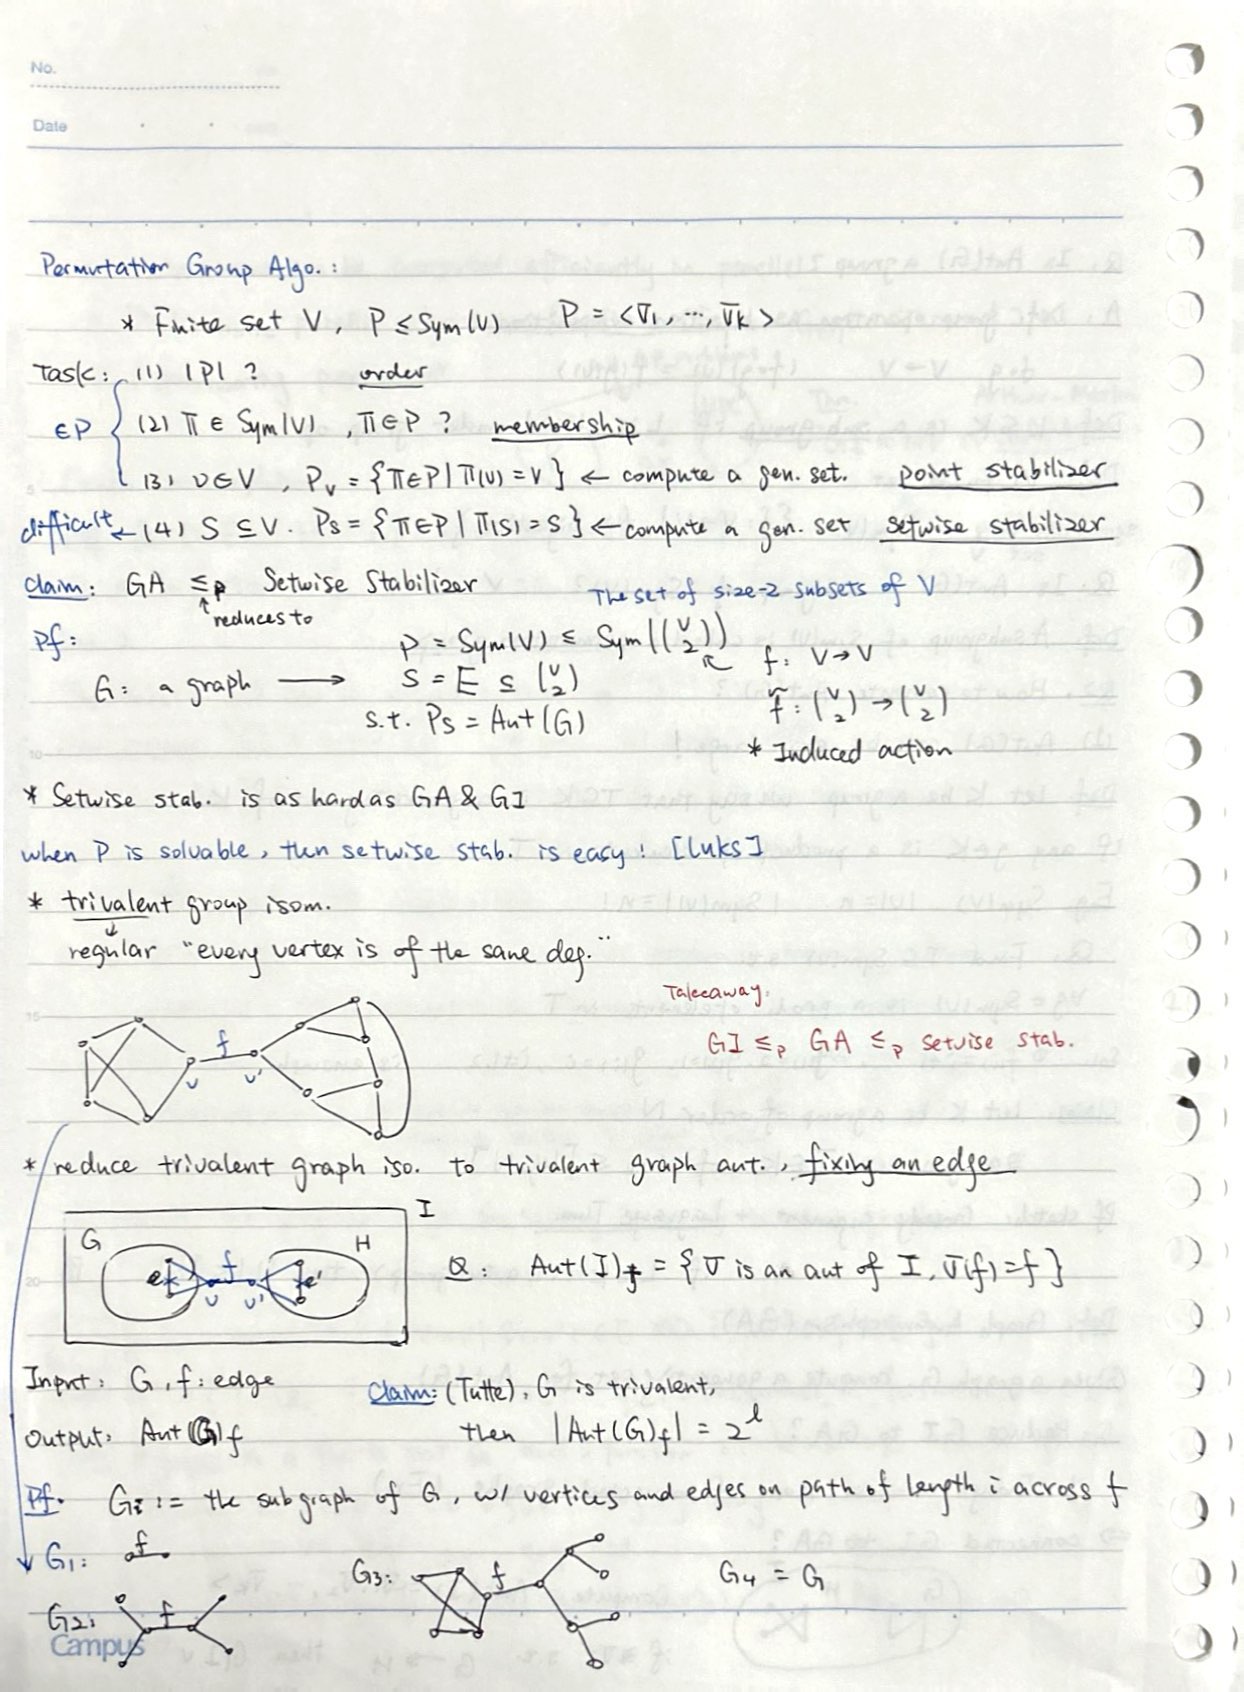 No.
Date
Permutation Group Algo.:
* Finite set V, P ≤ Sym(V) P = <π1, ..., πk>
Task: (1) |P| ? order
∈P (2) π ∈ Sym(V), π∈P ? membership
(3) v∈V, Pv = {π∈P | π(v) = v} ← compute a gen. set. point stabilizer
difficult ← (4) S ⊆ V. Ps = {π∈P | π(S) = S} ← compute a gen. set setwise stabilizer
Claim: GA ≤p Setwise Stabilizer
The set of size-2 subsets of V
↑ reduces to
Pf: P = Sym(V) ≤ Sym((V 2))
f: V→V
G: a graph ⟶ S = E ⊆ (V 2)
f̃: (V 2) → (V 2)
s.t. Ps = Aut(G)
* Induced action
* Setwise stab. is as hard as GA & GI
when P is solvable, then setwise stab. is easy! [Luks]
* trivalent group isom.
↓
regular "every vertex is of the same deg."
Takeaway:
GI ≤p GA ≤p setwise stab.
f
v v'
* reduce trivalent graph iso. to trivalent graph aut., fixing an edge
I
G f H
e v v' e'
Q: Aut(I)f = {σ is an aut of I, σ(f) = f}
Input: G, f: edge
Claim: (Tutte), G is trivalent,
Output: Aut(G)f
then |Aut(G)f| = 2^l
Pf. Gi := the subgraph of G, w/ vertices and edges on path of length i across f
G1: f
G3: f
G4 = G
G2: f
Campus